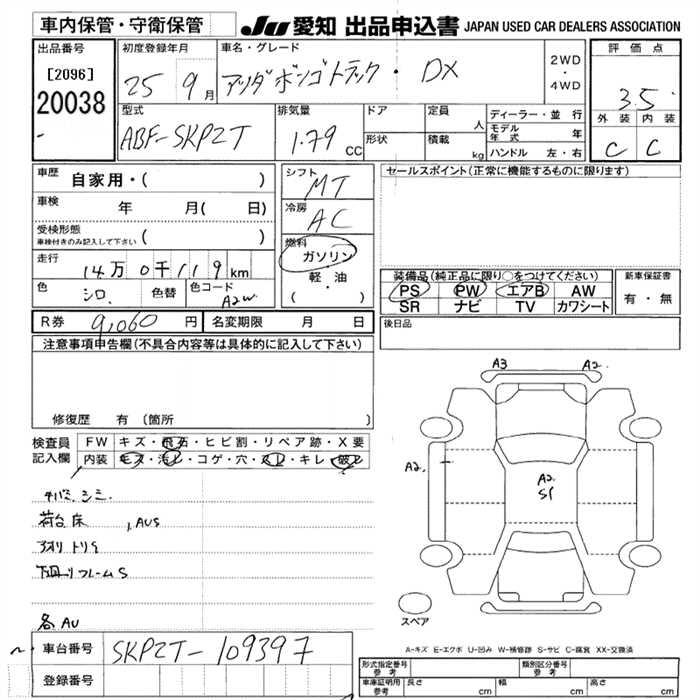 車内保管・守衛保管
JU 愛知 出品申込書 JAPAN USED CAR DEALERS ASSOCIATION
出品番号
[2096]
20038
初度登録年月
25 9月
車名・グレード
ボンゴトラック・ DX
2WD
・
4WD
評価点
3.5
外装 内装
C C
型式
ABF-SKP2T
排気量
1.79 CC
ドア
形状
定員 人
積載 kg
ディーラー・並行
モデル年式 年
ハンドル 左・右
車歴 自家用・( )
車検 年 月( 日)
受検形態
車検付きのみ記入して下さい ( )
走行 14万0千119km
色 シロ. 色替 色コード A2W
シフト
MT
冷房
AC
燃料
ガソリン
軽・油
( )
セールスポイント(正常に機能するものに限ります)
装備品(純正品に限り○をつけてください)
PS PW エアB AW
SR ナビ TV カワシート
新車保証書
有・無
R券 9,060円 名変期限 月 日
後日品
注意事項申告欄(不具合内容等は具体的に記入して下さい)
修復歴 有(箇所 )
検査員
記入欄
FW キズ・飛石・ヒビ割・リペア跡・X要
内装 キズ・汚レ・コゲ・穴・スレ・キレ・破レ
キバミ、シミ.
荷台床 , AUS
下廻りフレームS
各AU
A3 A2.
A2.
A2
S1
スペア
A-キズ E-エクボ U-凹み W-補修跡 S-サビ C-腐食 XX-交換済
車台番号 SKP2T-109397
登録番号
形式指定番号
参考
類別区分番号
参考
車庫証明用
参考
長さ cm 幅 cm 高さ cm